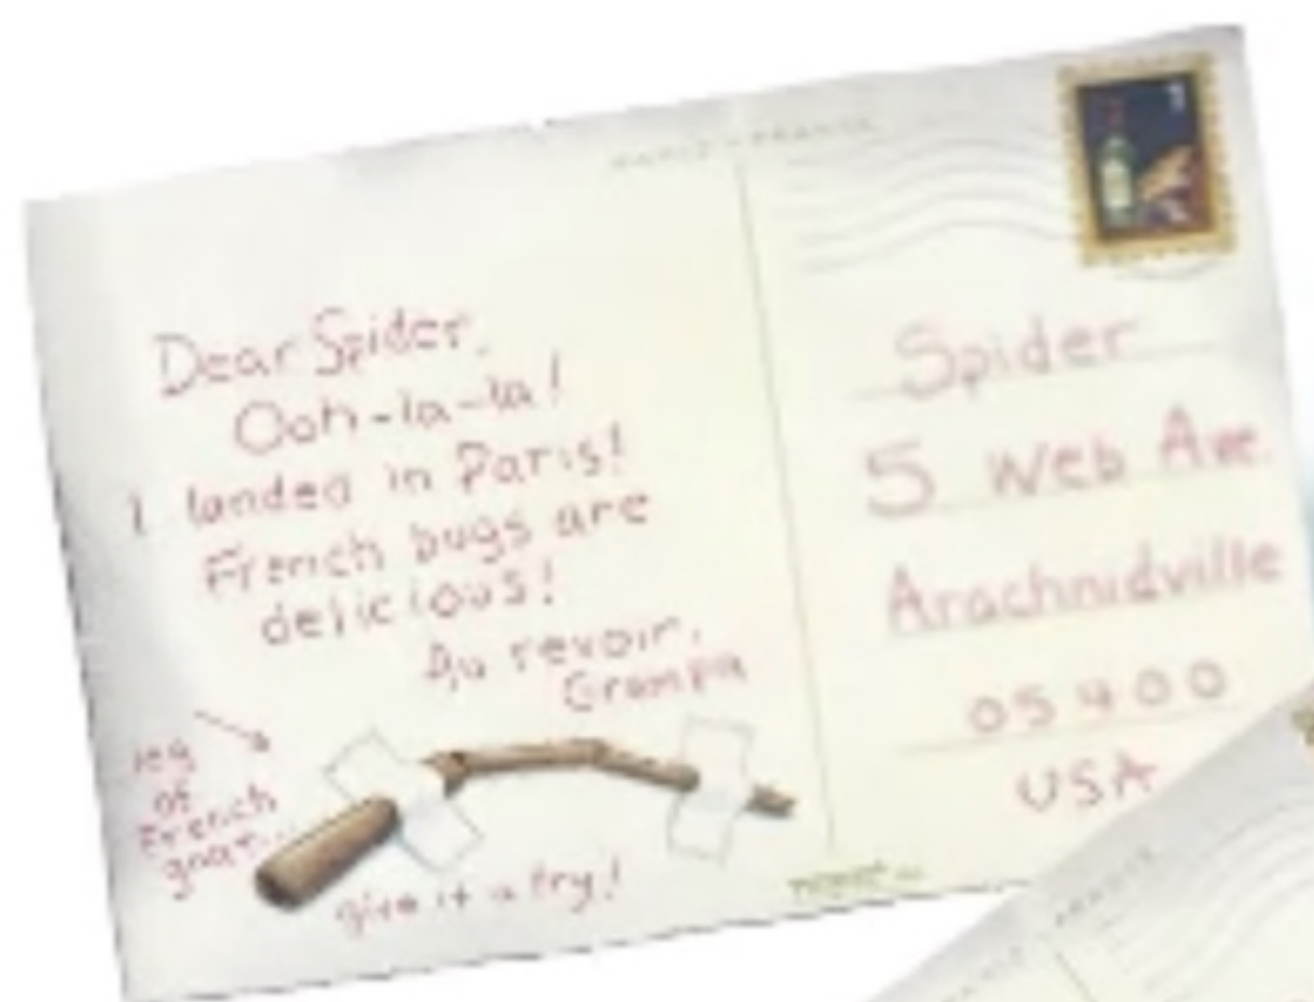 Dear Spider,
Ooh-la-la!
I landed in Paris!
French bugs are
delicious!
Au revoir,
Grampa
leg
of
French
gnat...
give it a try!
Spider
5 Web Ave.
Arachnidville
05400
USA